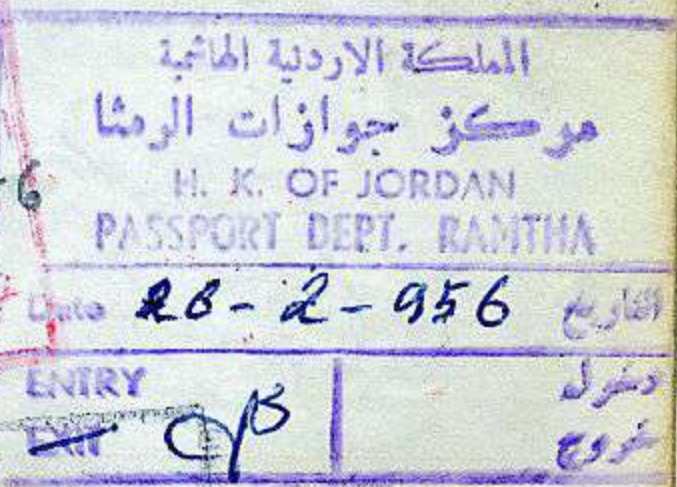 المملكة الاردنية الهاشمية
مركز جوازات الرمثا
H. K. OF JORDAN
PASSPORT DEPT. RAMTHA
Date 28-2-956 التاريخ
ENTRY دخول
EXIT خروج
6